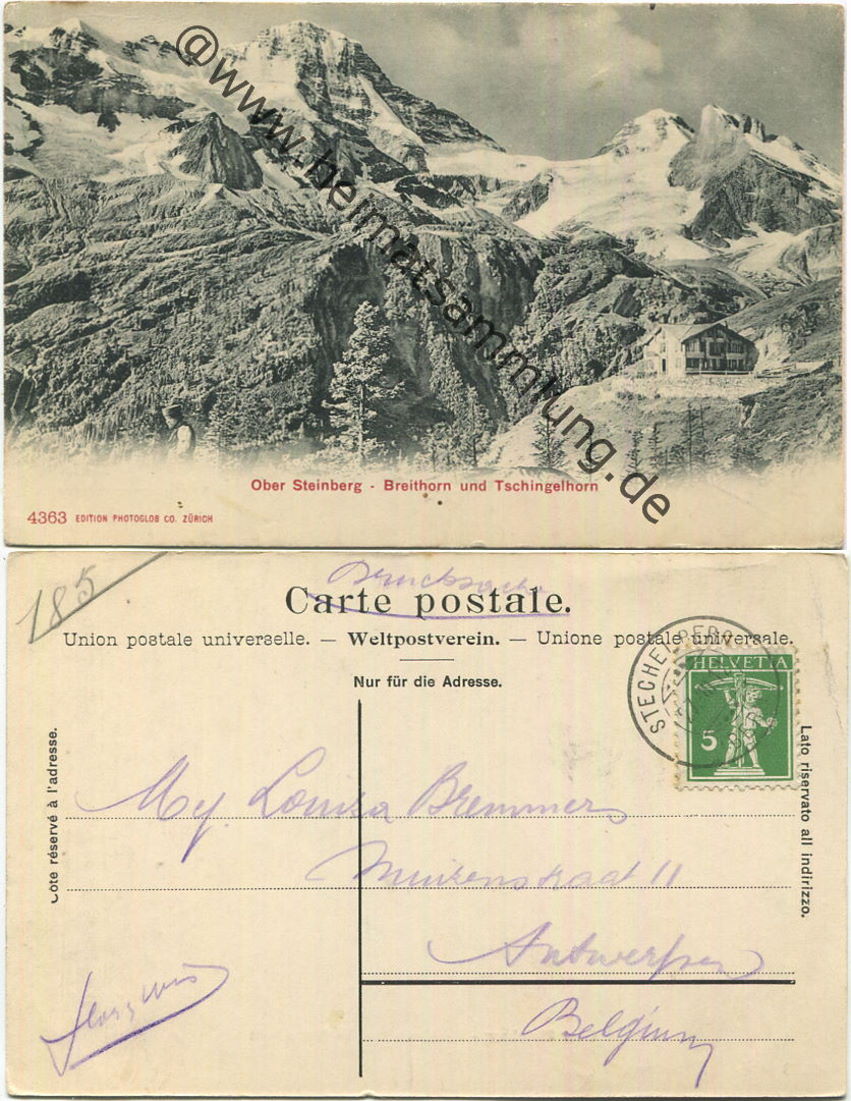 @www.heimatsammlung.de
Ober Steinberg - Breithorn und Tschingelhorn
4363 EDITION PHOTOGLOB CO. ZÜRICH
185
Drucksache
Carte postale.
Union postale universelle. — Weltpostverein. — Unione postale universale.
Nur für die Adresse.
STECHELBERG
HELVETIA
5
Côté réservé à l'adresse.
Lato riservato all indirizzo.
Mej. Louiza Bremmers
Muizenstraat 11
Antwerpen
Belgium